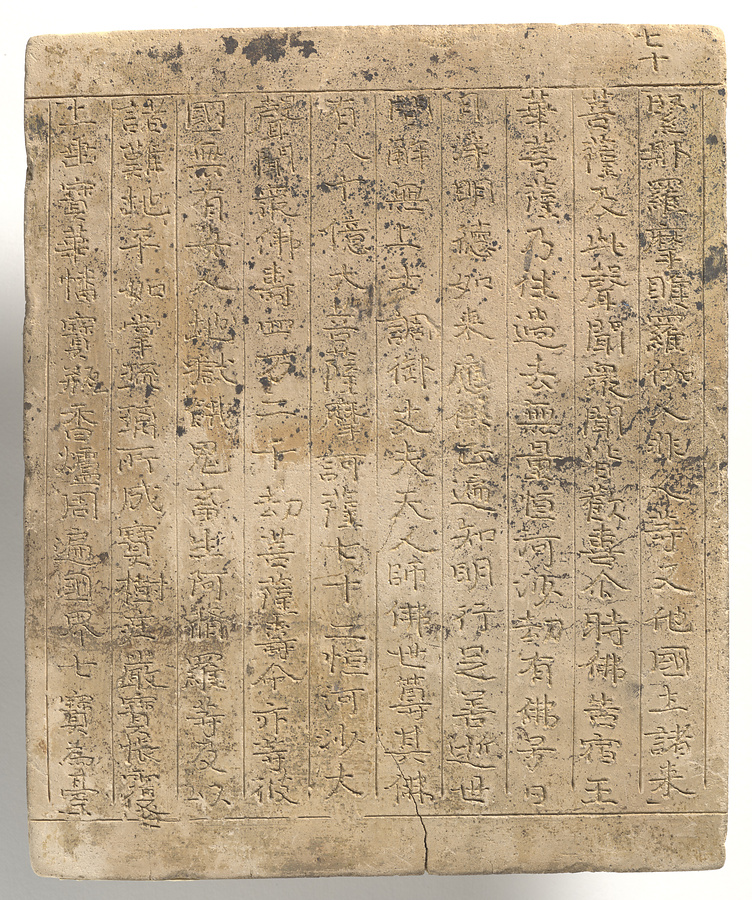 七十
緊那羅摩睺羅伽人非人等又他國土諸来
菩薩及此聲聞衆聞皆歡喜尒時佛告宿王
華菩薩乃往過去無量恒河沙劫有佛号日
月淨明德如来應供正遍知明行足善逝世
間解無上士調御丈夫天人師佛世尊其佛
有八十億大菩薩摩訶薩七十二恒河沙大
聲聞衆佛壽四万二千劫菩薩壽命亦等彼
國無有女人地獄餓鬼畜生阿脩羅等及以
諸難地平如掌琉璃所成寶樹莊嚴寶帳覆
上垂寶華幡寶瓶香爐周遍國界七寶為臺